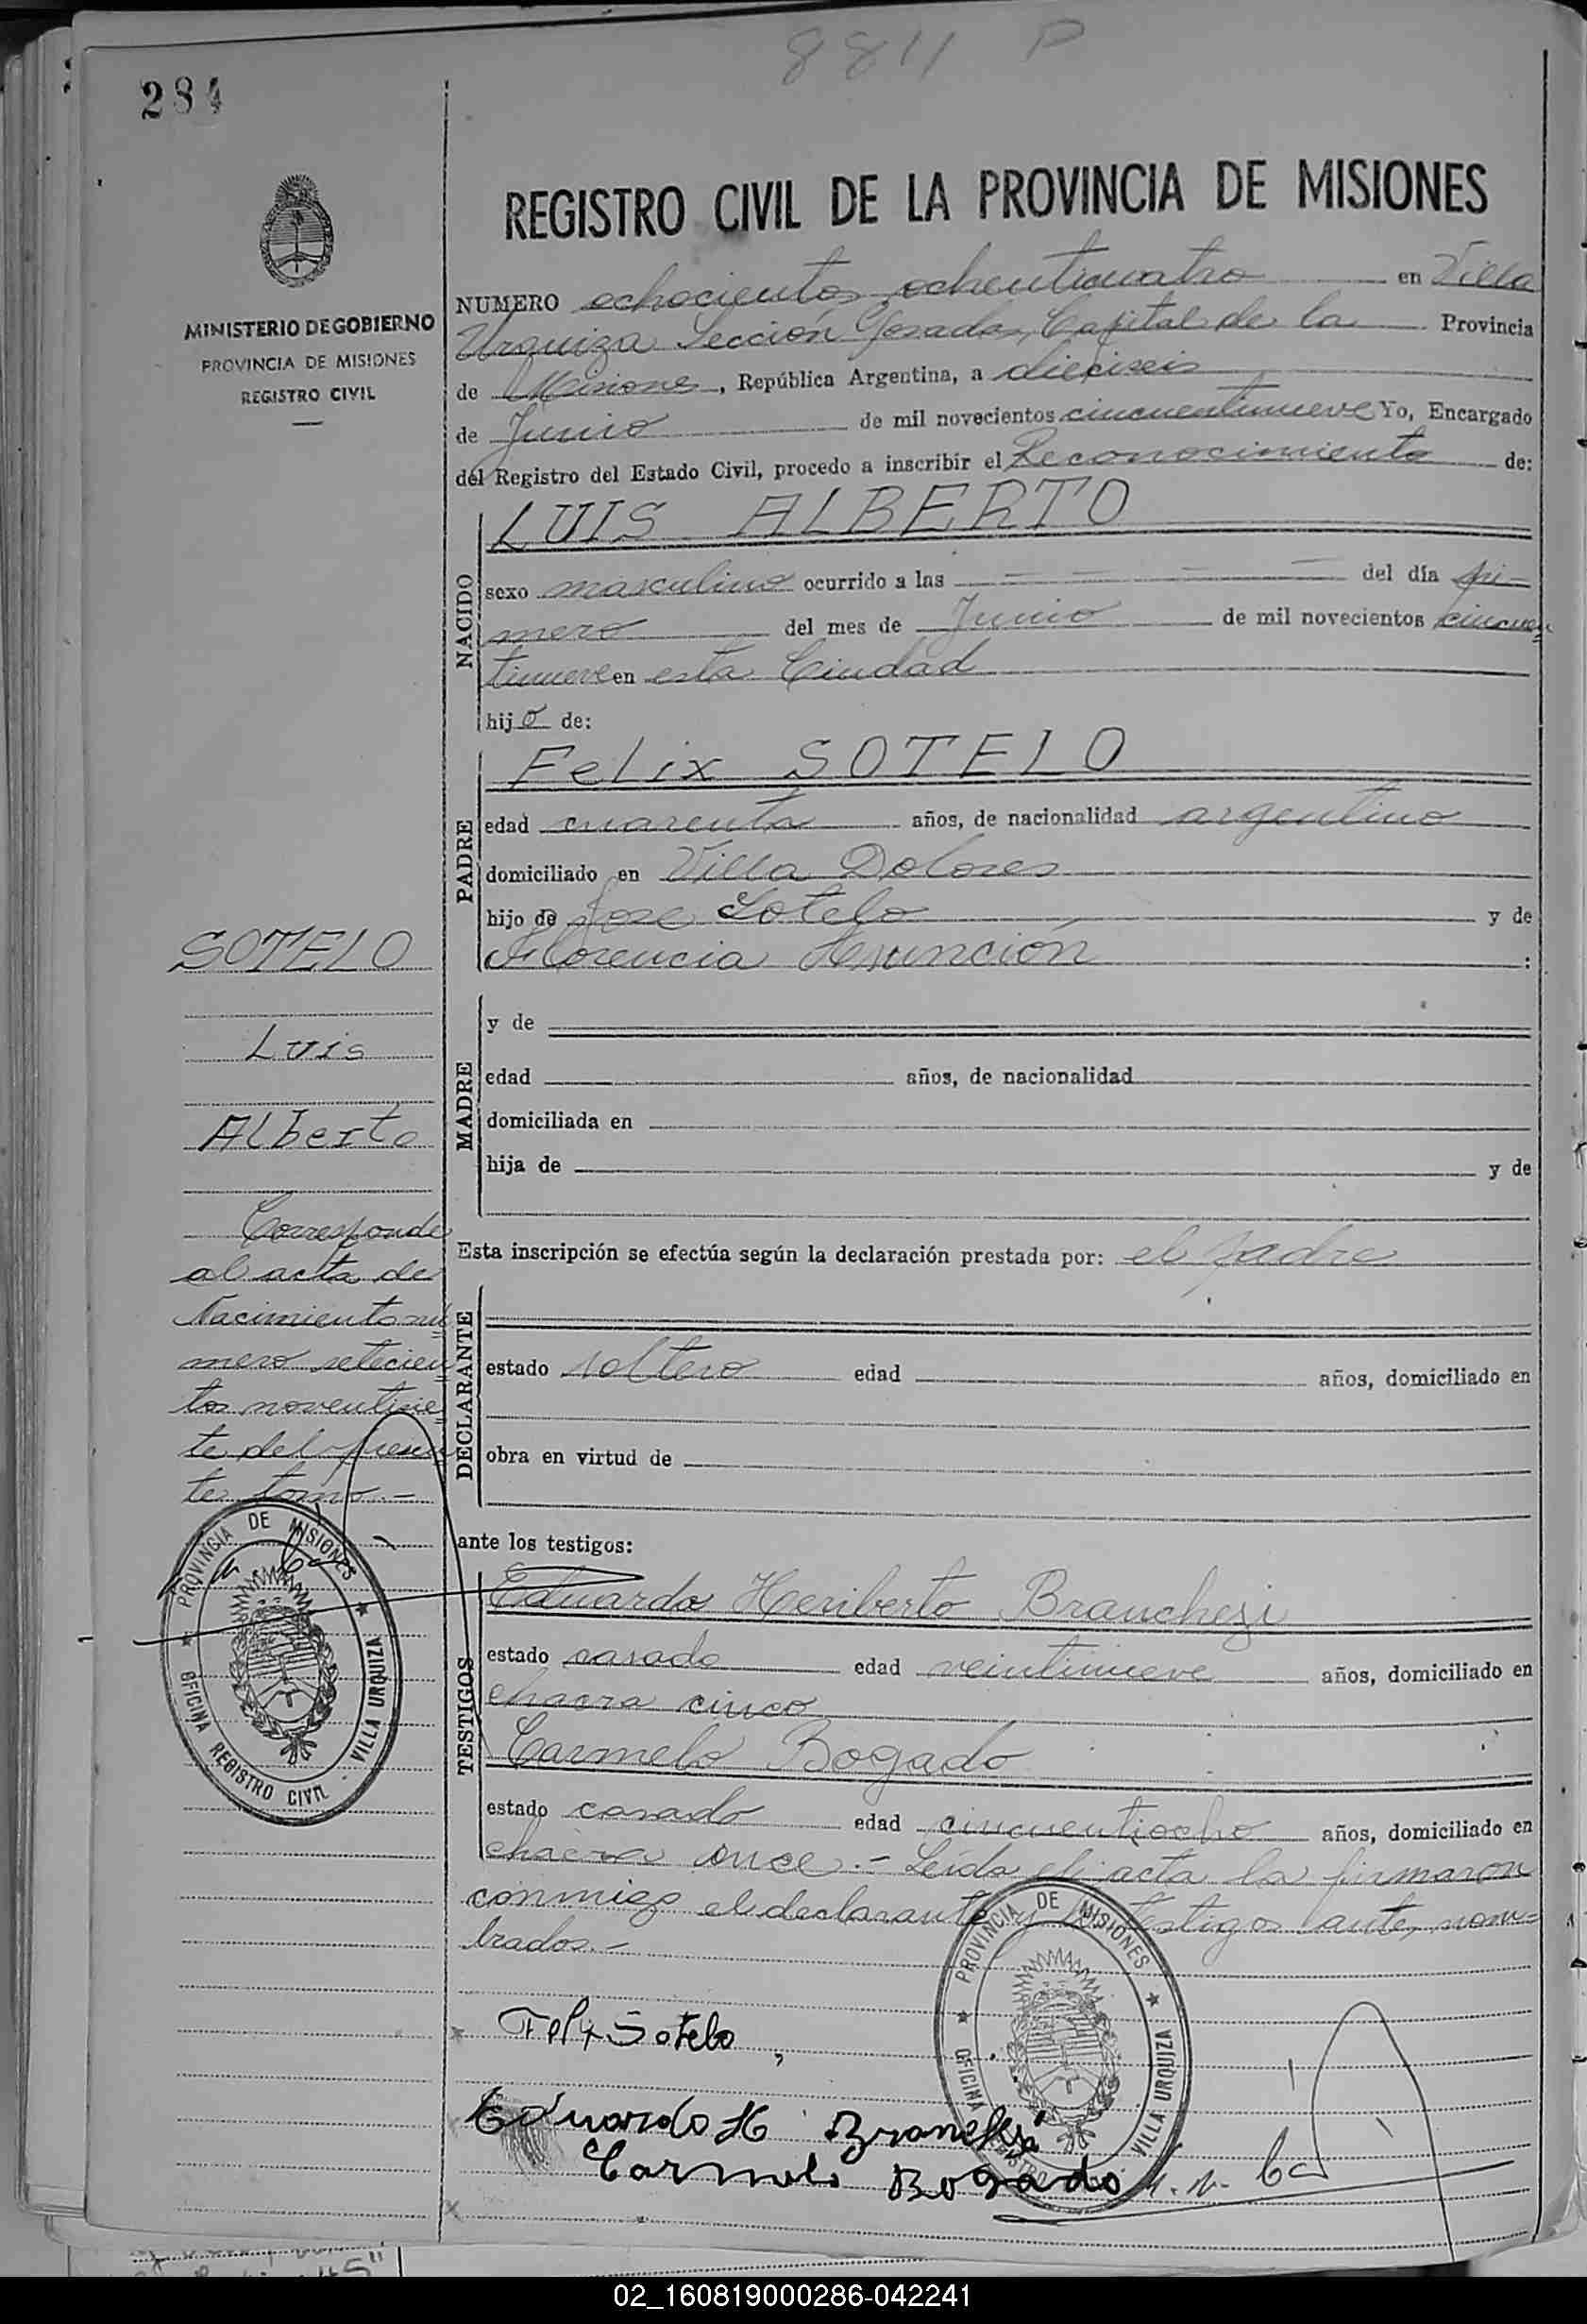 8811 P
284
REGISTRO CIVIL DE LA PROVINCIA DE MISIONES
MINISTERIO DE GOBIERNO
PROVINCIA DE MISIONES
REGISTRO CIVIL
NUMERO ochocientos ochenticuatro en Villa
Urquiza Sección Posadas, Capital de la Provincia
de Misiones, República Argentina, a dieciseis
de Junio de mil novecientos cincuentinueve Yo, Encargado
del Registro del Estado Civil, procedo a inscribir el Reconocimiento de:
NACIDO
LUIS ALBERTO
sexo masculino ocurrido a las — — — — del día pri-
mero del mes de Junio de mil novecientos cincuen=
tinueve en esta Ciudad
hijo de:
PADRE
Felix SOTELO
edad cuarenta años, de nacionalidad argentino
domiciliado en Villa Dolores
hijo de Jose Sotelo y de
Florencia Asunción :
MADRE
y de
edad años, de nacionalidad
domiciliada en
hija de y de
Esta inscripción se efectúa según la declaración prestada por: el padre
DECLARANTE
estado soltero edad años, domiciliado en
obra en virtud de
ante los testigos:
TESTIGOS
Eduardo Heriberto Branchesi
estado casado edad veintinueve años, domiciliado en
chacra cinco
Carmelo Bogado
estado casado edad cincuentiocho años, domiciliado en
chacra once.- Leída el acta la firmaron
conmigo el declarante y los testigos ante, nom=
brados.-
SOTELO
Luis
Alberto
Corresponde
al acta de
Nacimiento nú=
mero setecien=
tos noventisie=
te del presen=
te tomo.-
PROVINCIA DE MISIONES
OFICINA REGISTRO CIVIL - VILLA URQUIZA
Felix Sotelo
Eduardo H Branchesi
Carmelo Bogado
PROVINCIA DE MISIONES
OFICINA REGISTRO VILLA URQUIZA
02_160819000286-042241